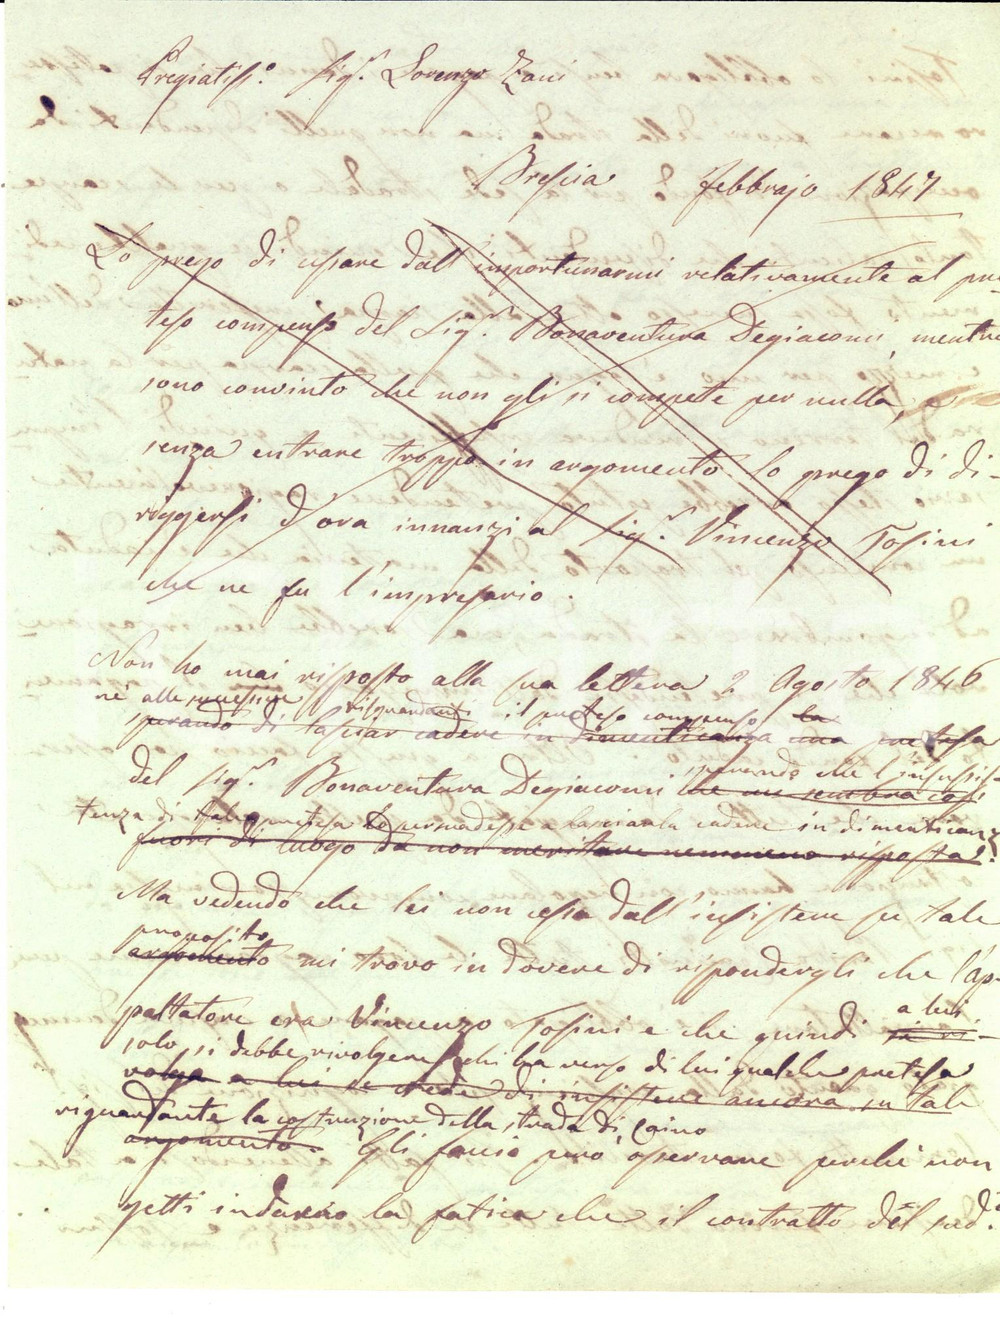 Pregiatiss.º Sig.r Lorenzo Zani
Brescia febbrajo 1847
La prego di cessare dall'importunarmi relativamente al pre
teso compenso del Sig.r Bonaventura Degiacomi, mentre
sono convinto che non gli si compete per nulla, e
senza entrare troppo in argomento La prego di di-
riggersi d'ora innanzi al Sig.r Vincenzo Tosini
che ne fu l'impresario.
Non ho mai risposto alla sua lettera 2 Agosto 1846
né alle successive risguardanti il preteso compenso la
sperando di lasciar cadere in dimenticanza una pretesa
del Sig.r Bonaventura Degiacomi sperando che l'insussis-
che mi sembra così
tenza di tale pretesa Lo persuadesse a lasciarla cadere in dimenticanza
fuori di luogo da non meritare nemmeno risposta.
Ma vedendo che lei non cessa dall'insistere su tale
proposito
argomento mi trovo in dovere di rispondergli che l'ap-
paltatore era Vincenzo Tosini e che quindi a lui
si ri-
solo si debbe rivolgere chi ha verso di lui qualche pretesa
volga a lui se crede di insistere ancora su tale
riguardante la costruzione della strada di Caino
argomento. Gli faccio però osservare perché non
getti indarno la fatica che il contratto del sud.º